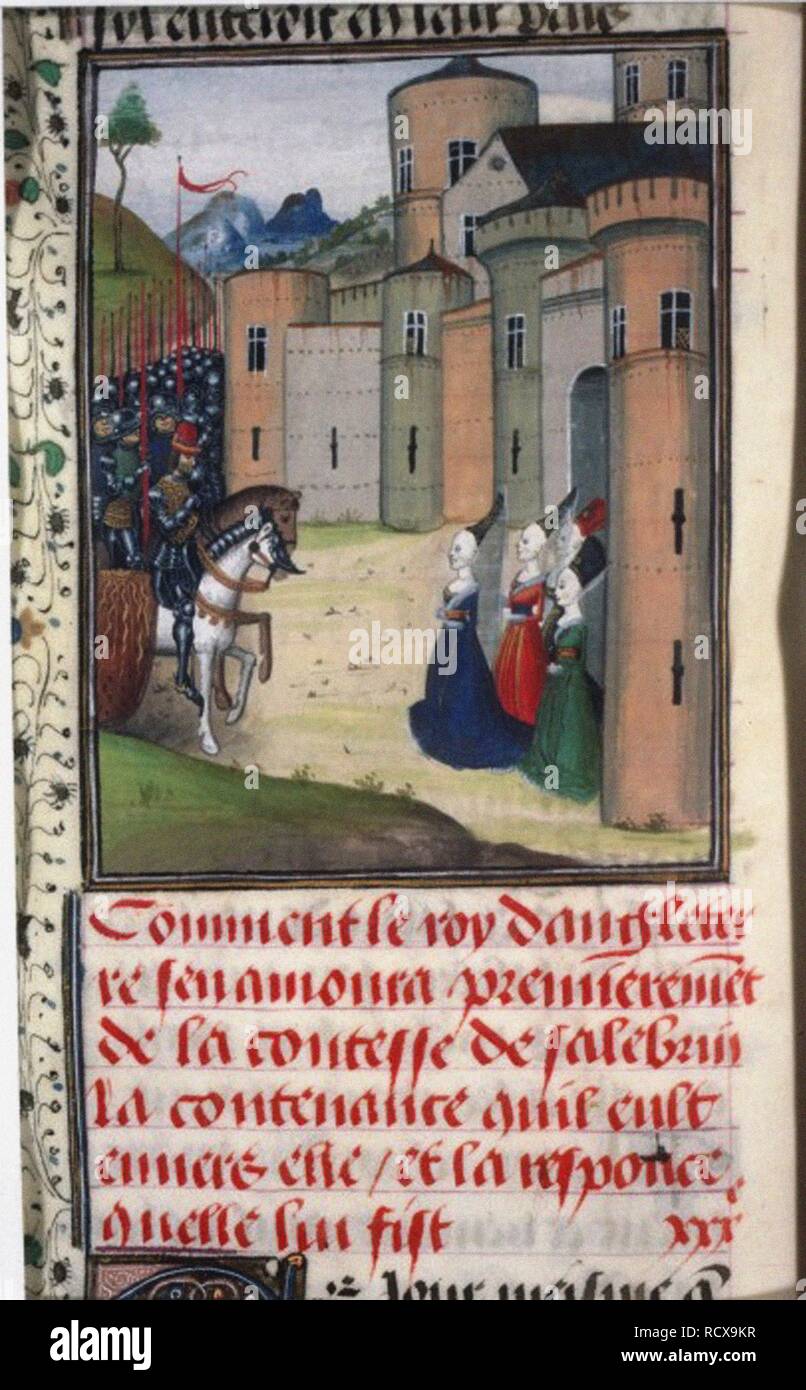 Comment le roy dangleter
re sen amoura premierem̄et
de la contesse de salebrin
la contenance quil eult
enuers elle / et la responce
quelle lui fist xxxe
alamy
Image ID: RCX9KR
www.alamy.com